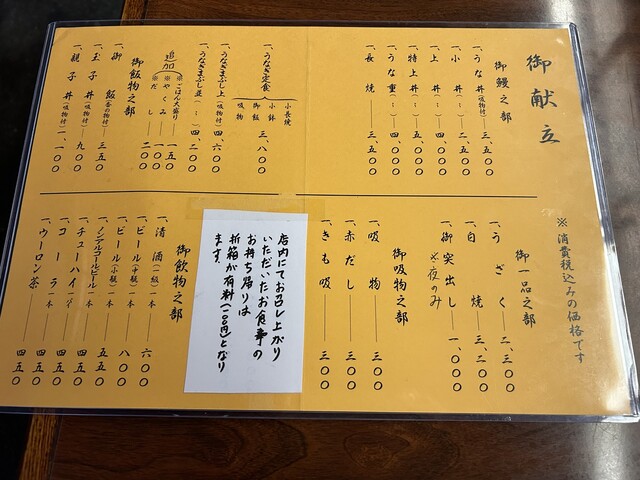 御献立
※消費税込みの価格です
御鰻之部
一、うな丼(吸物付)――三、五〇〇
一、小丼(〃)――二、五〇〇
一、上丼(〃)――四、〇〇〇
一、特上丼(〃)――五、〇〇〇
一、うな重(〃)――四、〇〇〇
一、長焼――三、五〇〇
一、うなぎ定食 小長焼 小鉢 御飯 吸物 三、八〇〇
一、うなぎまぶし上(吸物付)四、六〇〇
一、うなぎまぶし並(〃)四、二〇〇
追加
※ごはん大盛り――一五〇
※やくみ――一〇〇
※だし――二〇〇
御飯物之部
一、御飯(香の物付)三五〇
一、玉子丼(吸物付)九〇〇
一、親子丼(吸物付)一、一〇〇
御一品之部
一、うざく――二、三〇〇
一、白焼――三、二〇〇
一、御突出し――一、〇〇〇
※夜のみ
御吸物之部
一、吸物――三〇〇
一、赤だし――三五〇
一、きも吸――三〇〇
店内にてお召し上がり
いただいたお食事の
お持ち帰りは
折箱が有料(一〇〇円)となり
ます。
御飲物之部
一、清酒(一級)一本――六〇〇
一、ビール(中瓶)一本――八〇〇
一、ビール(小瓶)一本――五五〇
一、ノンアルコールビール一本――五五〇
一、チューハイ――四五〇
一、コーラ一本――四五〇
一、ウーロン茶――四五〇